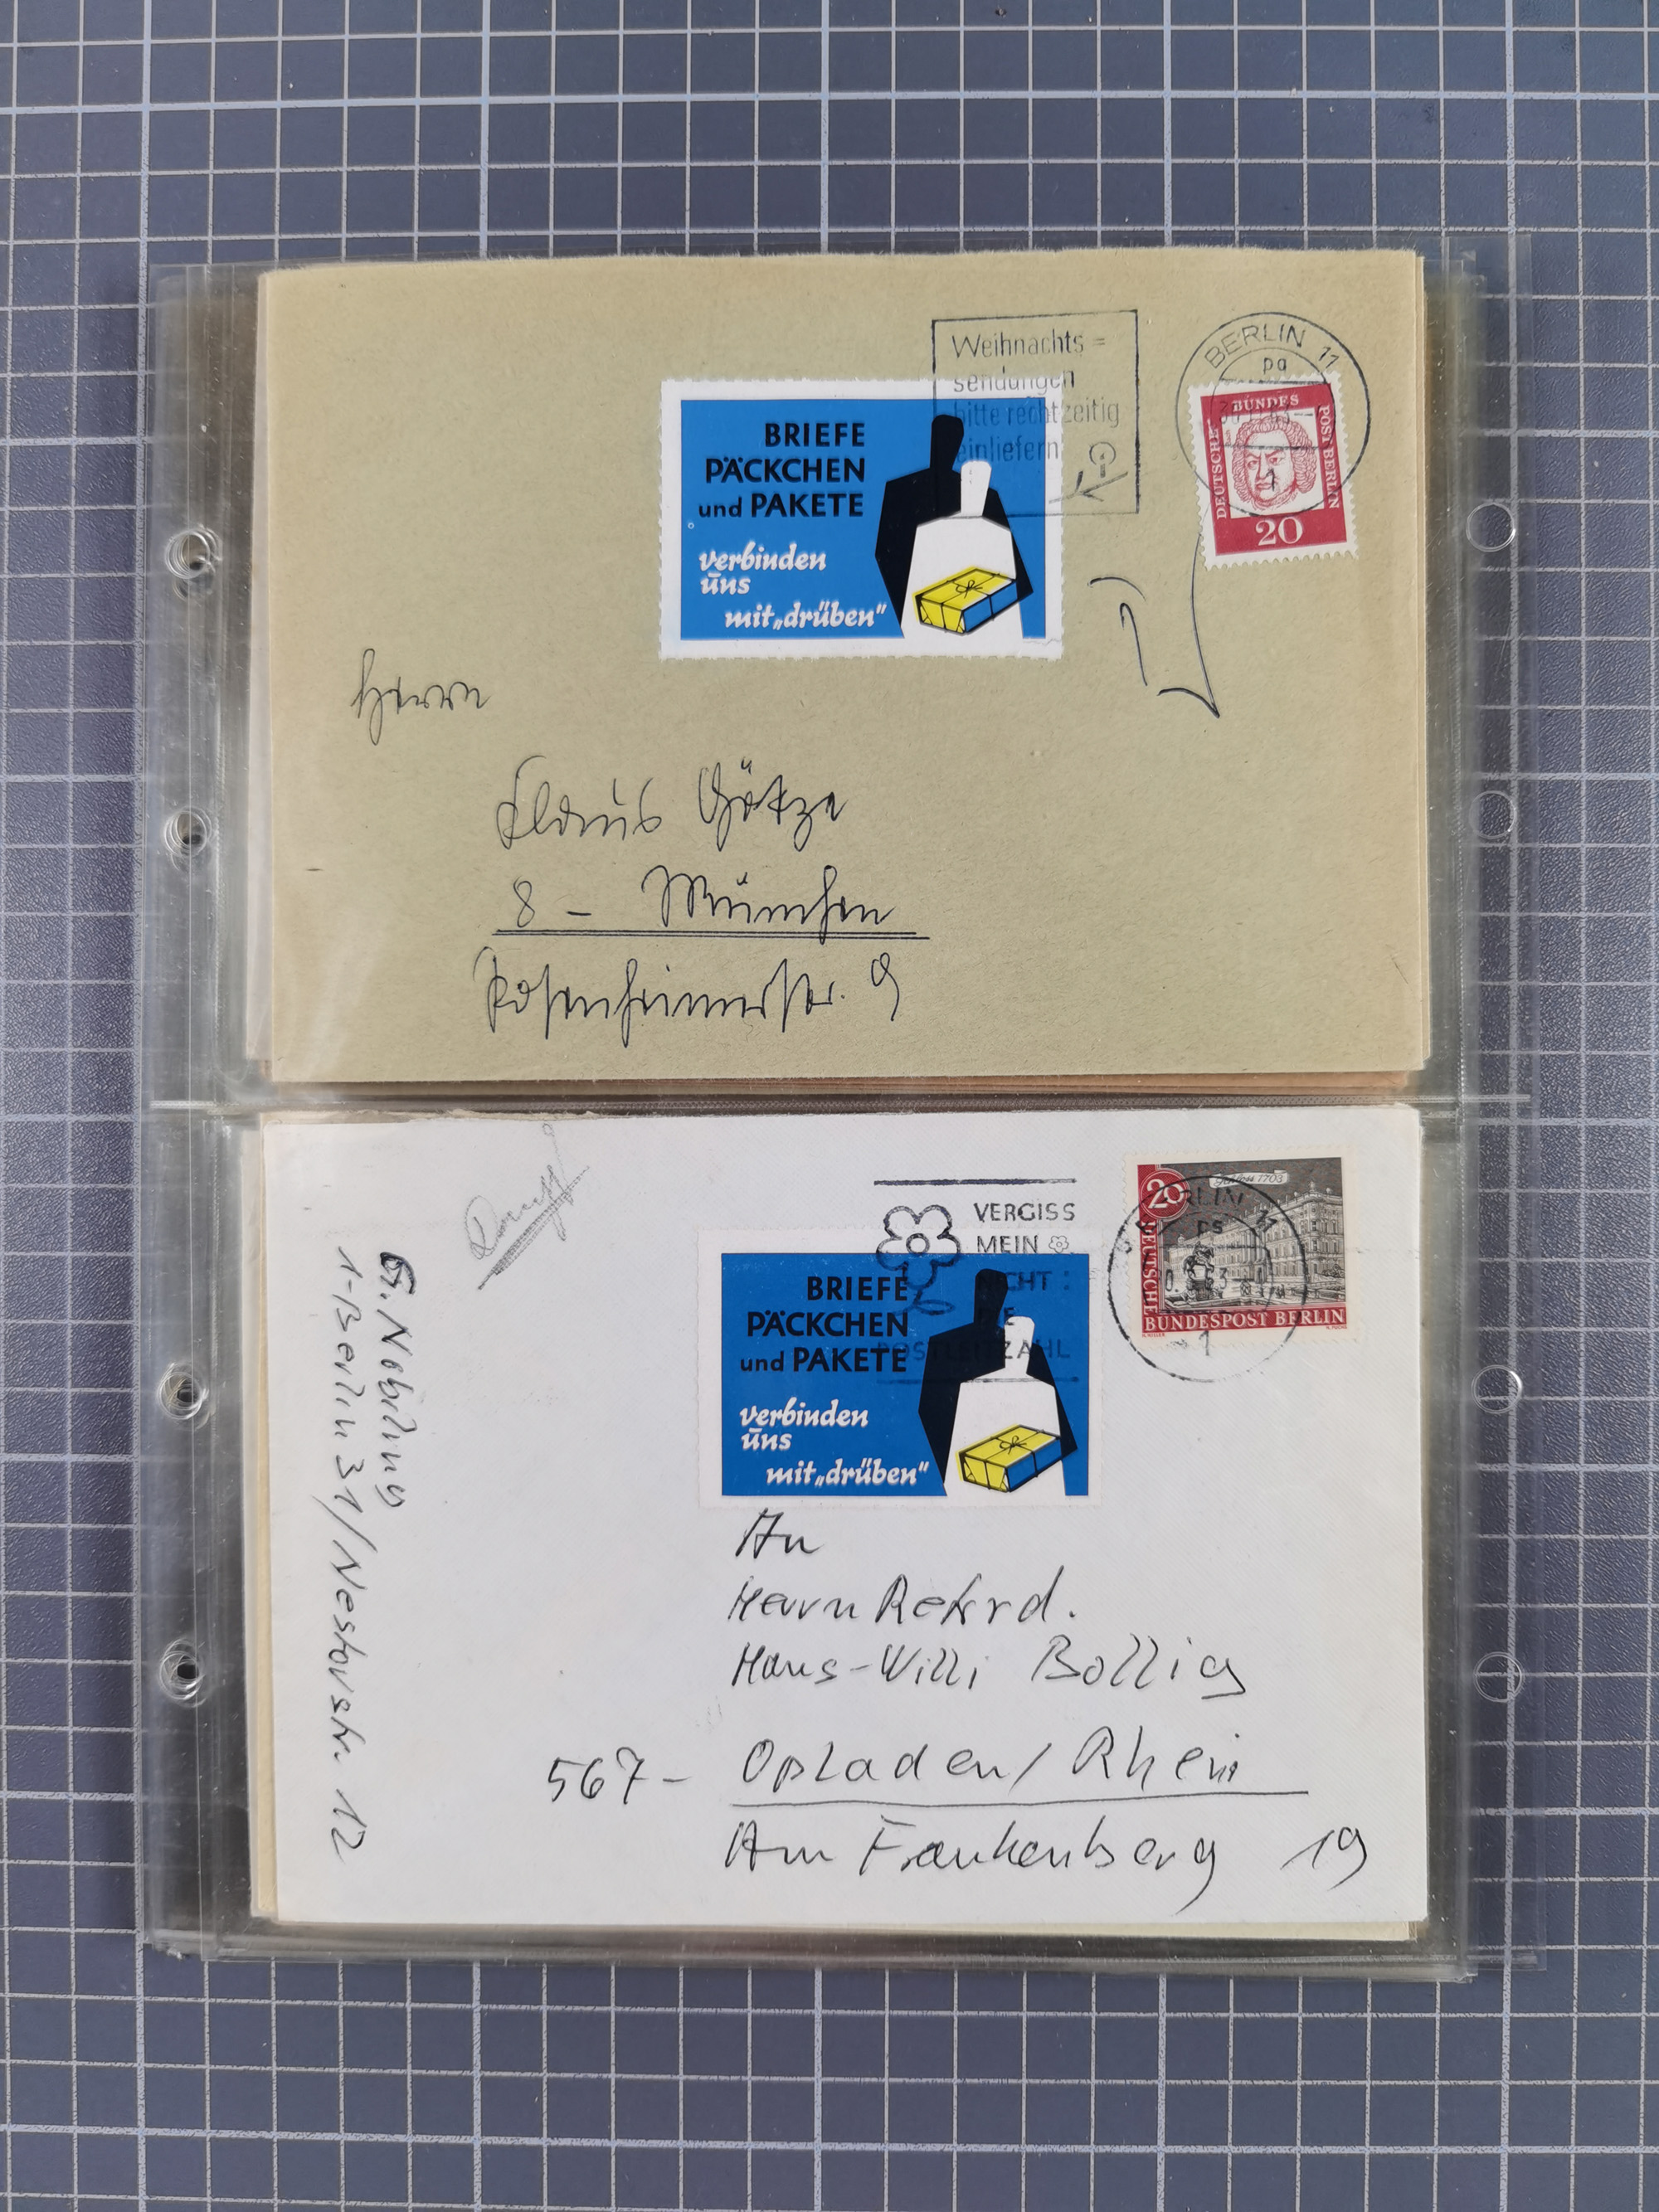 Weihnachts=
sendungen
bitte rechtzeitig
einliefern
BERLIN 11
pa
1
DEUTSCHE
BUNDES
POST BERLIN
20
BRIEFE
PÄCKCHEN
und PAKETE
verbinden
uns
mit „drüben“
Herrn
Klaus Götze
8 - München
Rosenheimerstr. 9
VERGISS
MEIN
NICHT:
DIE
POSTLEITZAHL
BERLIN 11
ps
1
20
Schloss 1703
DEUTSCHE
BUNDESPOST BERLIN
BRIEFE
PÄCKCHEN
und PAKETE
verbinden
uns
mit „drüben“
G. Nobiling
1-Berlin 31/Nestorstr. 12
An
Herrn
Hans-Willi Bollig
567- Opladen/Rhein
Am Frankenberg 19